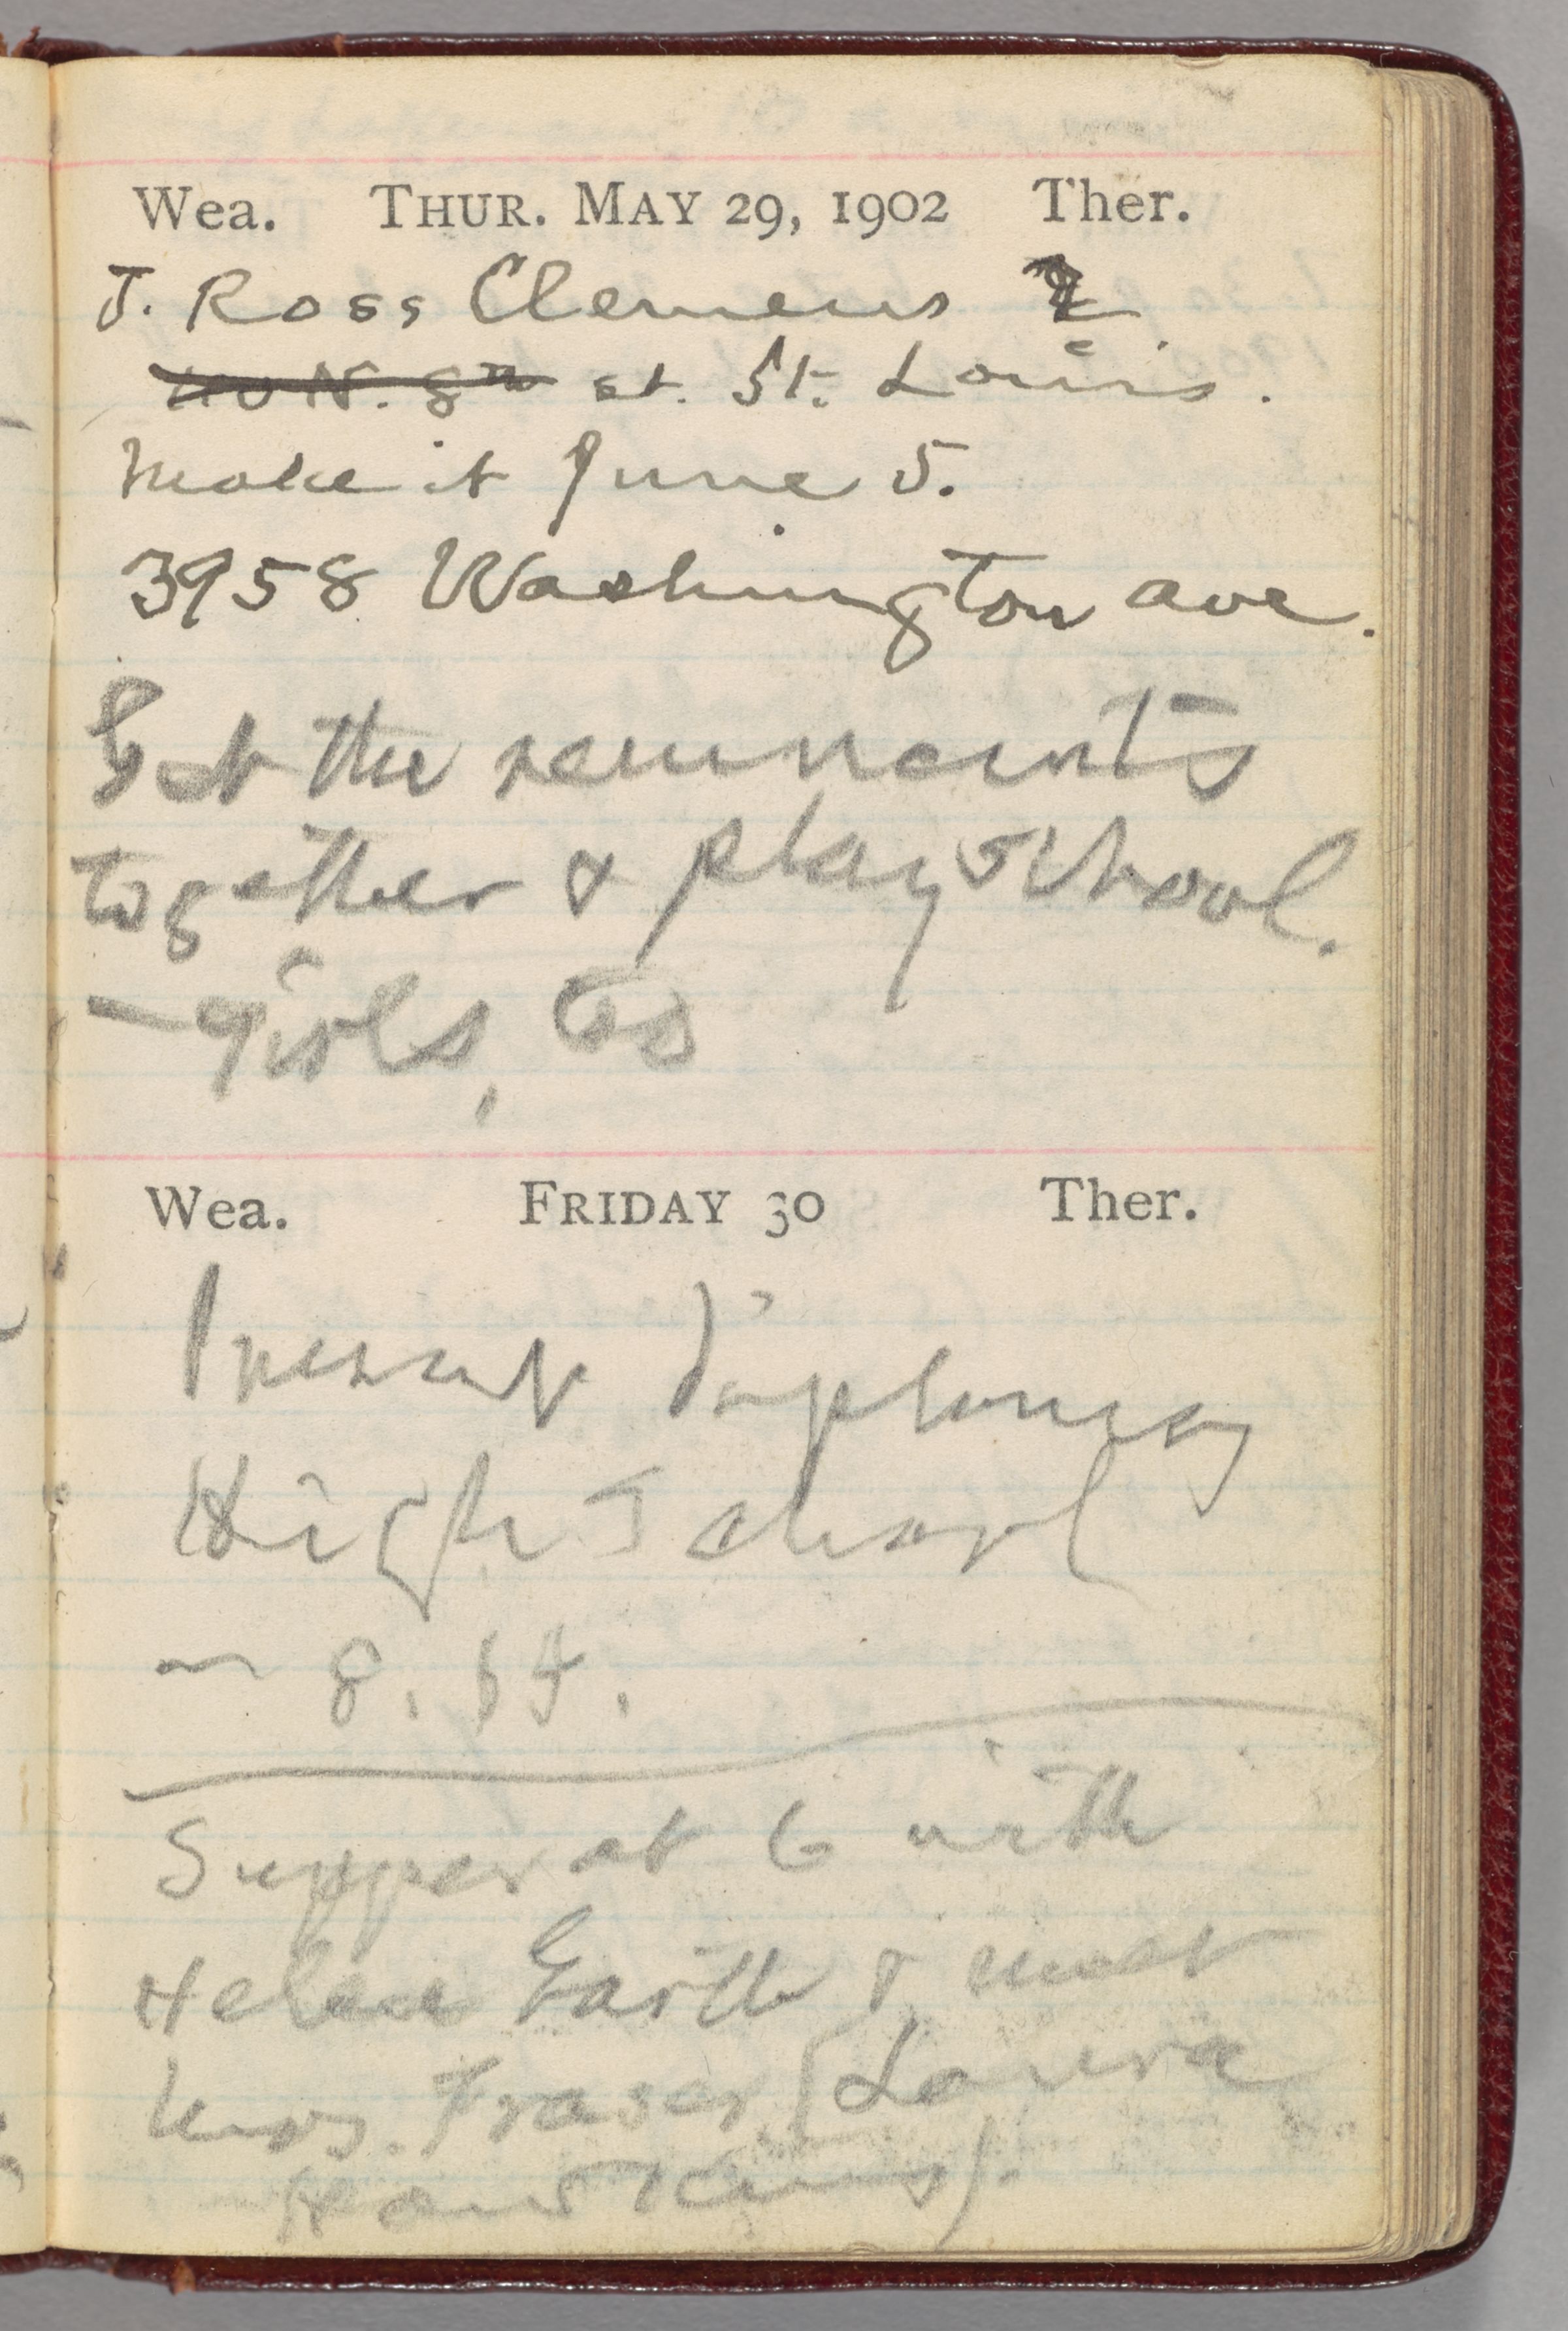 Wea. THUR. MAY 29, 1902 Ther.
J. Ross Clemens
N. 8th st. St. Louis.
make it June 5.
3958 Washington ave.
Get the remnants
together & play school.
— girls, too
Wea. FRIDAY 30 Ther.
Present diplomas
High School
— 8.
Supper at 6 with
Helen Garth & meet
Mrs. Frazer (Laura
Hawkins).